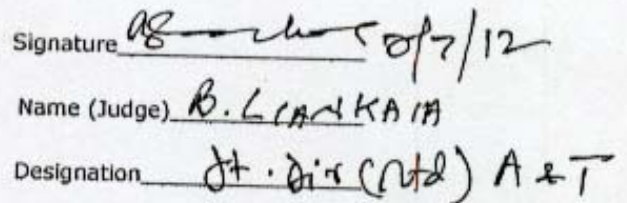 Signature 2/7/12
Name (Judge) B. LIANKAIA
Designation Jt. Dir (Rtd) A & T